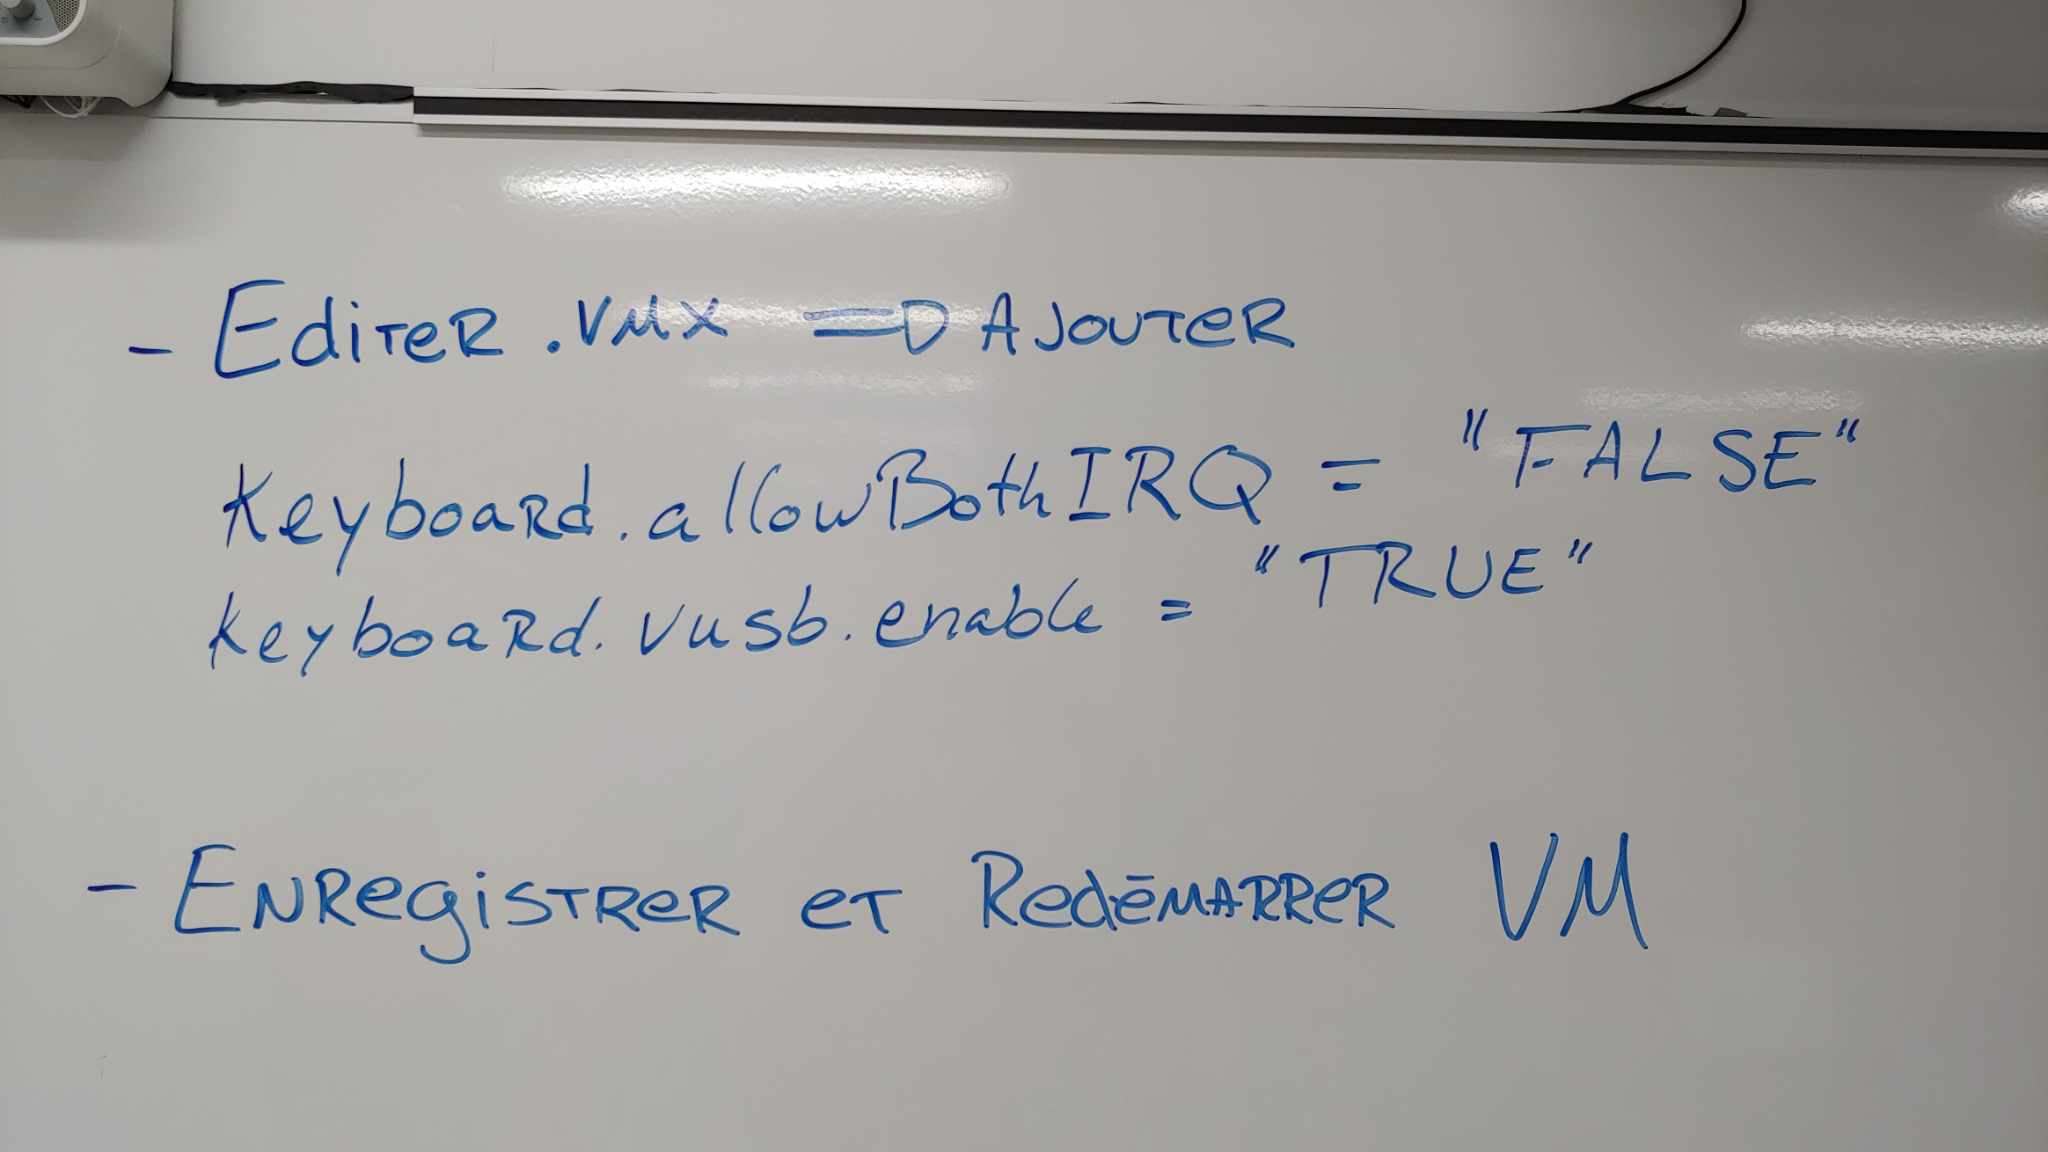 - Editer .vmx => AJOUTER
Keyboard.allowBothIRQ = "FALSE"
keyboard.vusb.enable = "TRUE"
- ENRegiSTRER et RedéMARRER VM